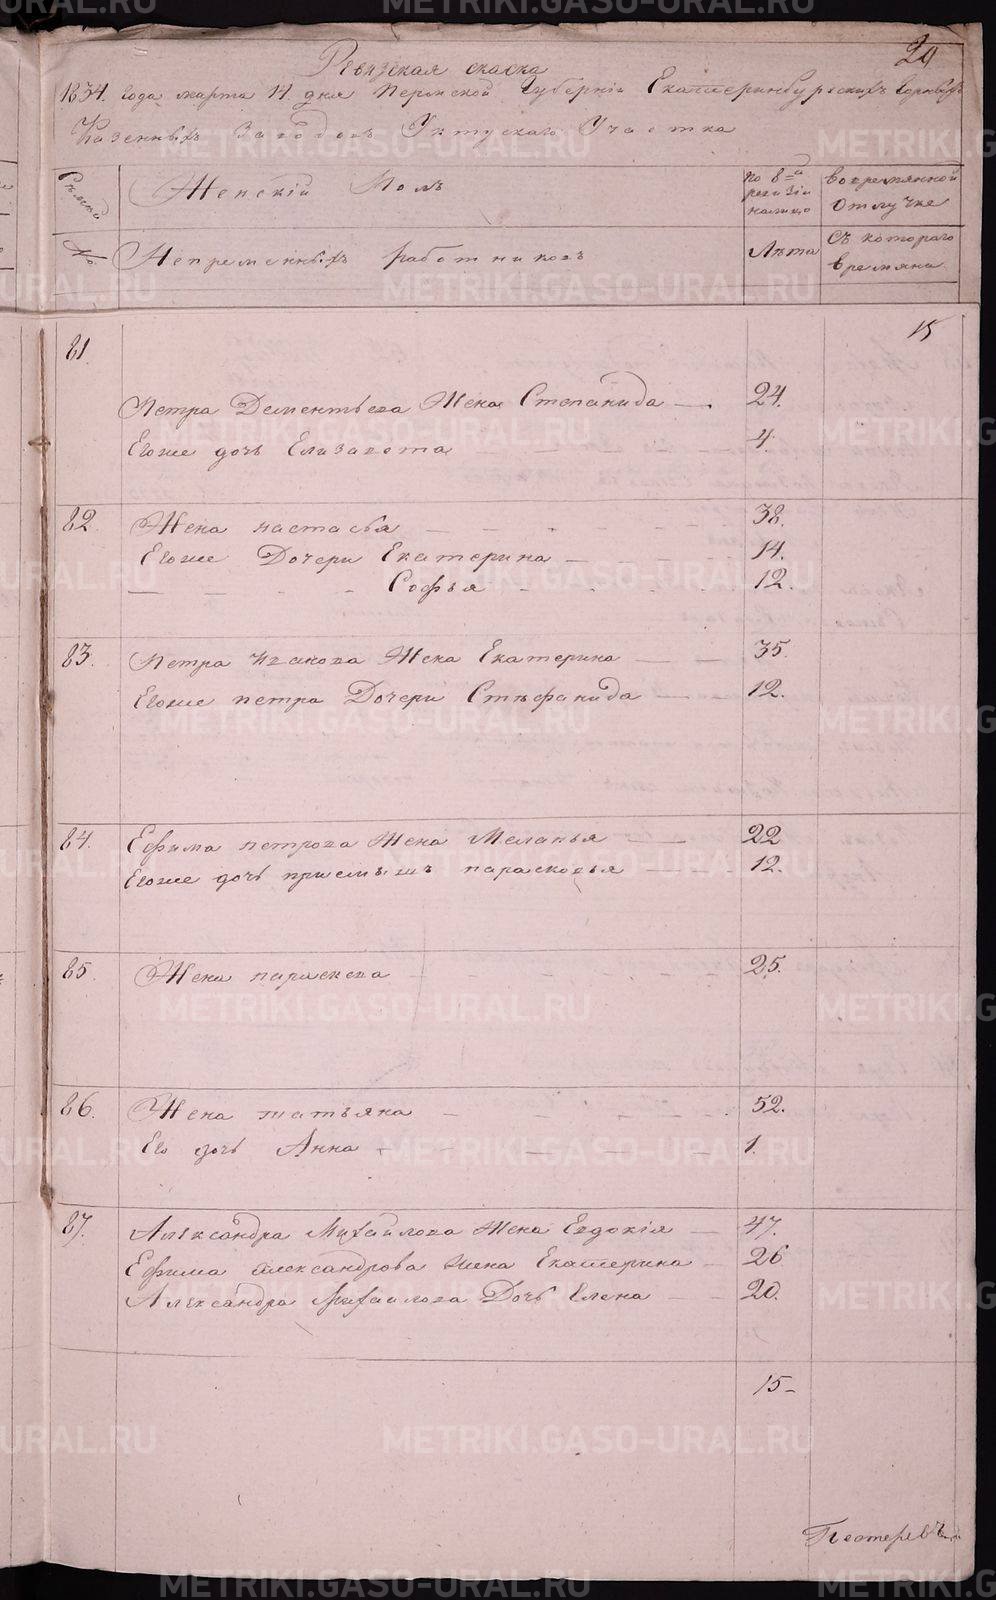 29
Ревизская скаска
1834. года марта 14 дня Пермской Губернiи Екатеринбургскихъ Горныхъ
Казенныхъ Заводовъ Уктускаго Участка
Женскiй Полъ
по 8=й ревизiи налицо
вовремянной отлучке
№
Непременныхъ работниковъ
Лѣта
съ котораго времяни
15
81.
Петра Дементьева Жена Степанида — 24.
Егоже дочь Елизавета 4.
82. Жена настасья 38.
Егоже Дочери Екатерина 14.
Софья 12.
83. Петра Иванова Жена Екатерина 35.
Егоже петра Дочери Стефанида 12.
84. Ефима петрова Жена Меланья 22
Егоже дочь приемышъ парасковья 12.
85. Жена параскева 25.
86. Жена татьяна 52.
Его дочь Анна 1.
87. Александра Михайлова Жена Евдокiя 47.
Ефима Александрова жена Екатерина 26
Александра Михайлова Дочь Елена 20.
15-
METRIKI.GASO-URAL.RU